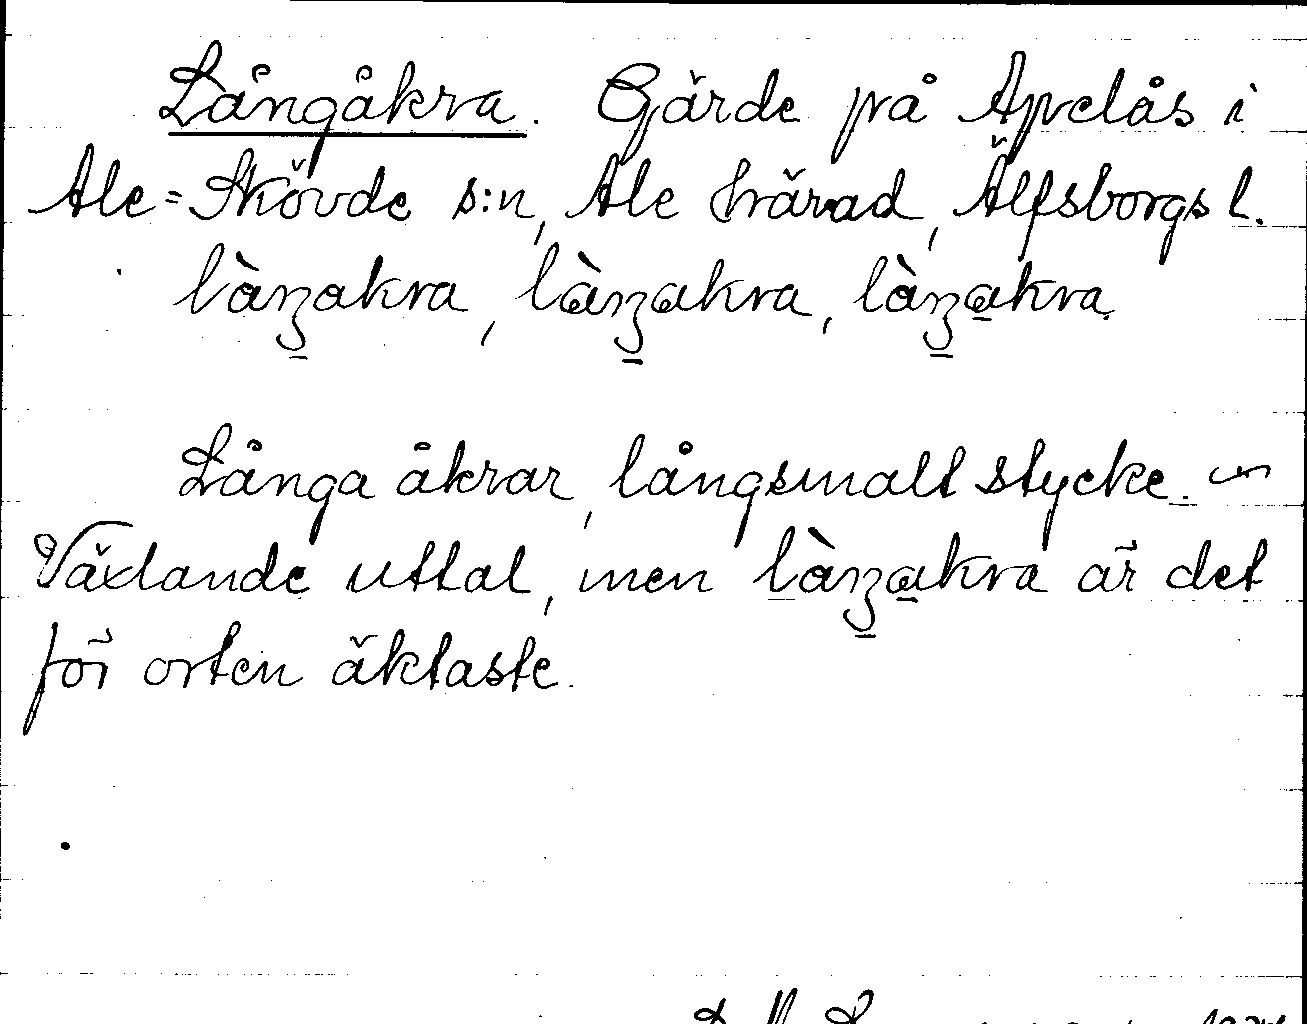 Långåkra. Gärde på Apelås i
Ale=Skövde s:n, Ale härad, Älfsborgs l.
làŋakra, làŋakra, làŋakra.
Långa åkrar, långsmalt stycke.
Växlande uttal, men làŋakra är det
för orten äktaste.